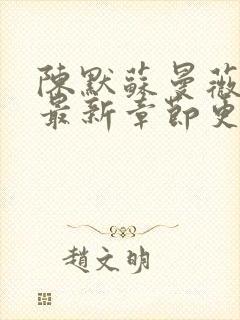 陳默蘇曼薇
最新章節更
趙文明